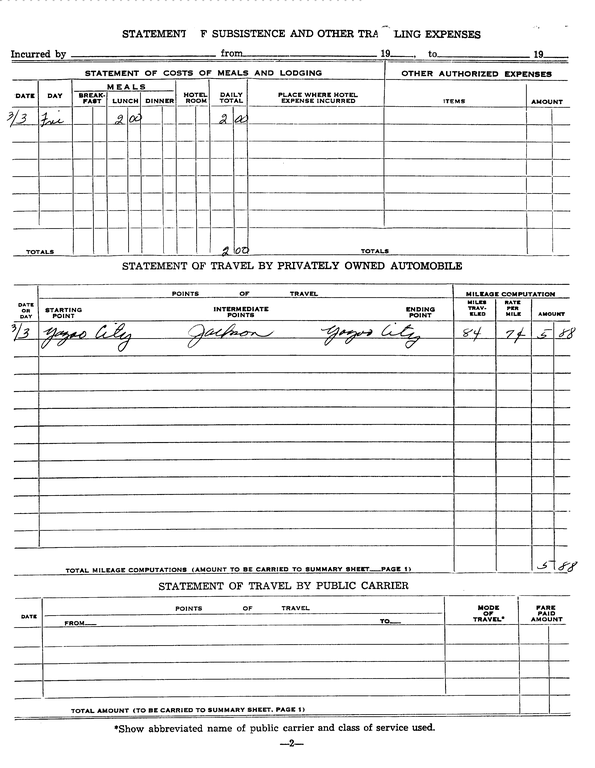 STATEMENT F SUBSISTENCE AND OTHER TRA LING EXPENSES
Incurred by from 19 , to 19
STATEMENT OF COSTS OF MEALS AND LODGING OTHER AUTHORIZED EXPENSES
DATE DAY MEALS BREAK-FAST LUNCH DINNER HOTEL ROOM DAILY TOTAL PLACE WHERE HOTEL EXPENSE INCURRED ITEMS AMOUNT
3/3 Fri 2 00 2 00
TOTALS 2 00 TOTALS
STATEMENT OF TRAVEL BY PRIVATELY OWNED AUTOMOBILE
POINTS OF TRAVEL MILEAGE COMPUTATION
DATE OR DAY STARTING POINT INTERMEDIATE POINTS ENDING POINT MILES TRAV-ELED RATE PER MILE AMOUNT
3/3 Yazoo City Jackson Yazoo City 84 7¢ 5 88
TOTAL MILEAGE COMPUTATIONS (AMOUNT TO BE CARRIED TO SUMMARY SHEET—PAGE 1) 5 88
STATEMENT OF TRAVEL BY PUBLIC CARRIER
DATE POINTS OF TRAVEL MODE OF TRAVEL* FARE PAID AMOUNT
FROM— TO—
TOTAL AMOUNT (TO BE CARRIED TO SUMMARY SHEET, PAGE 1)
*Show abbreviated name of public carrier and class of service used.
—2—